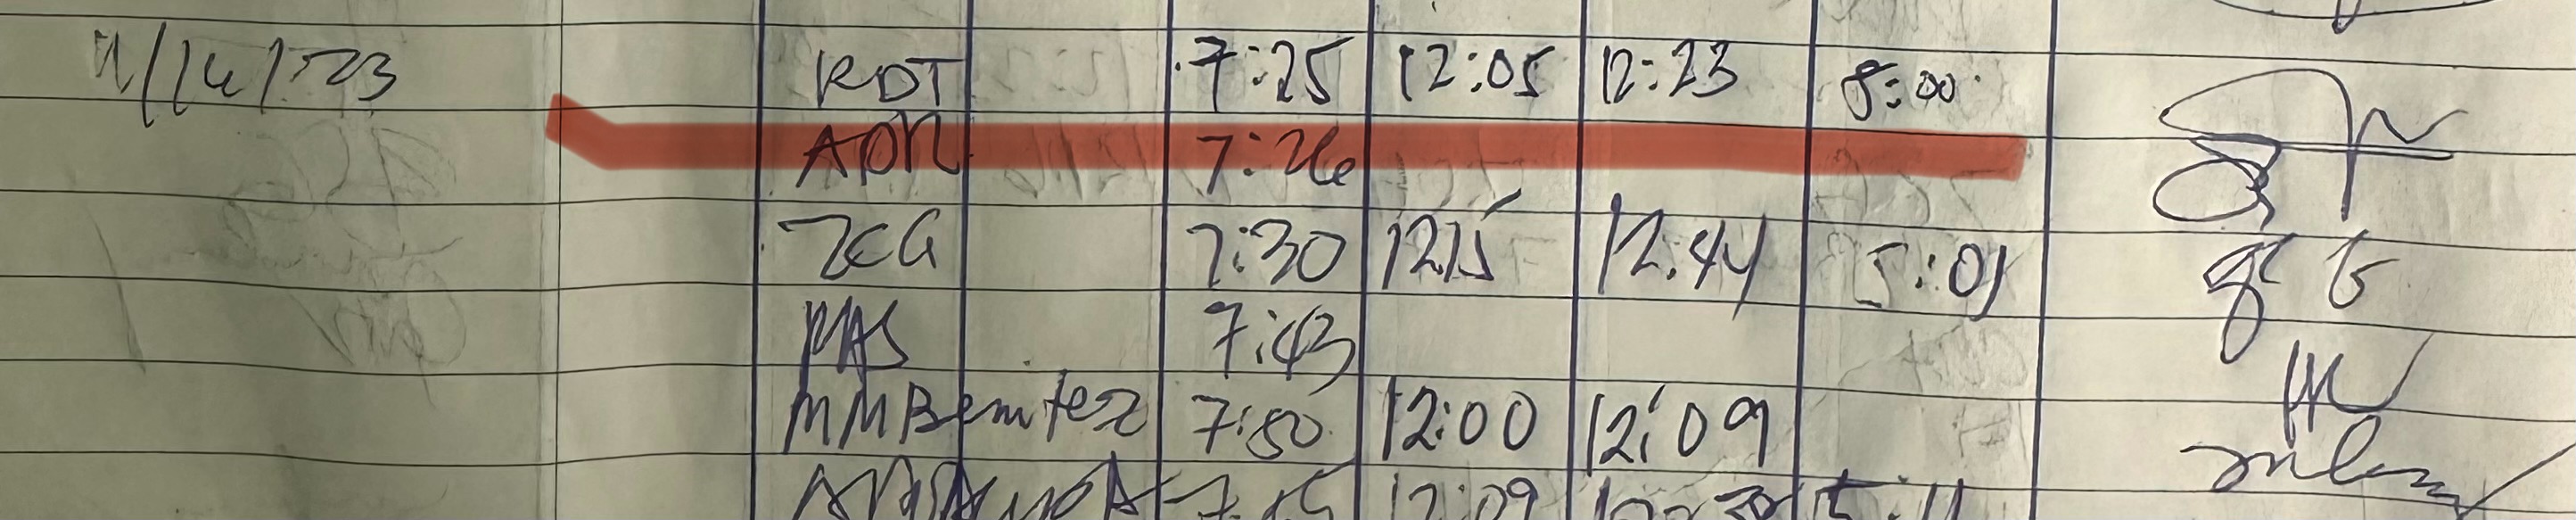 11/14/23 RDT 7:25 12:05 12:23 8:00
ADR 7:26
ZCG 7:30 1215 12:44 5:01
MAS 7:43
MMBenitez 7:50 12:00 12:09
12:09